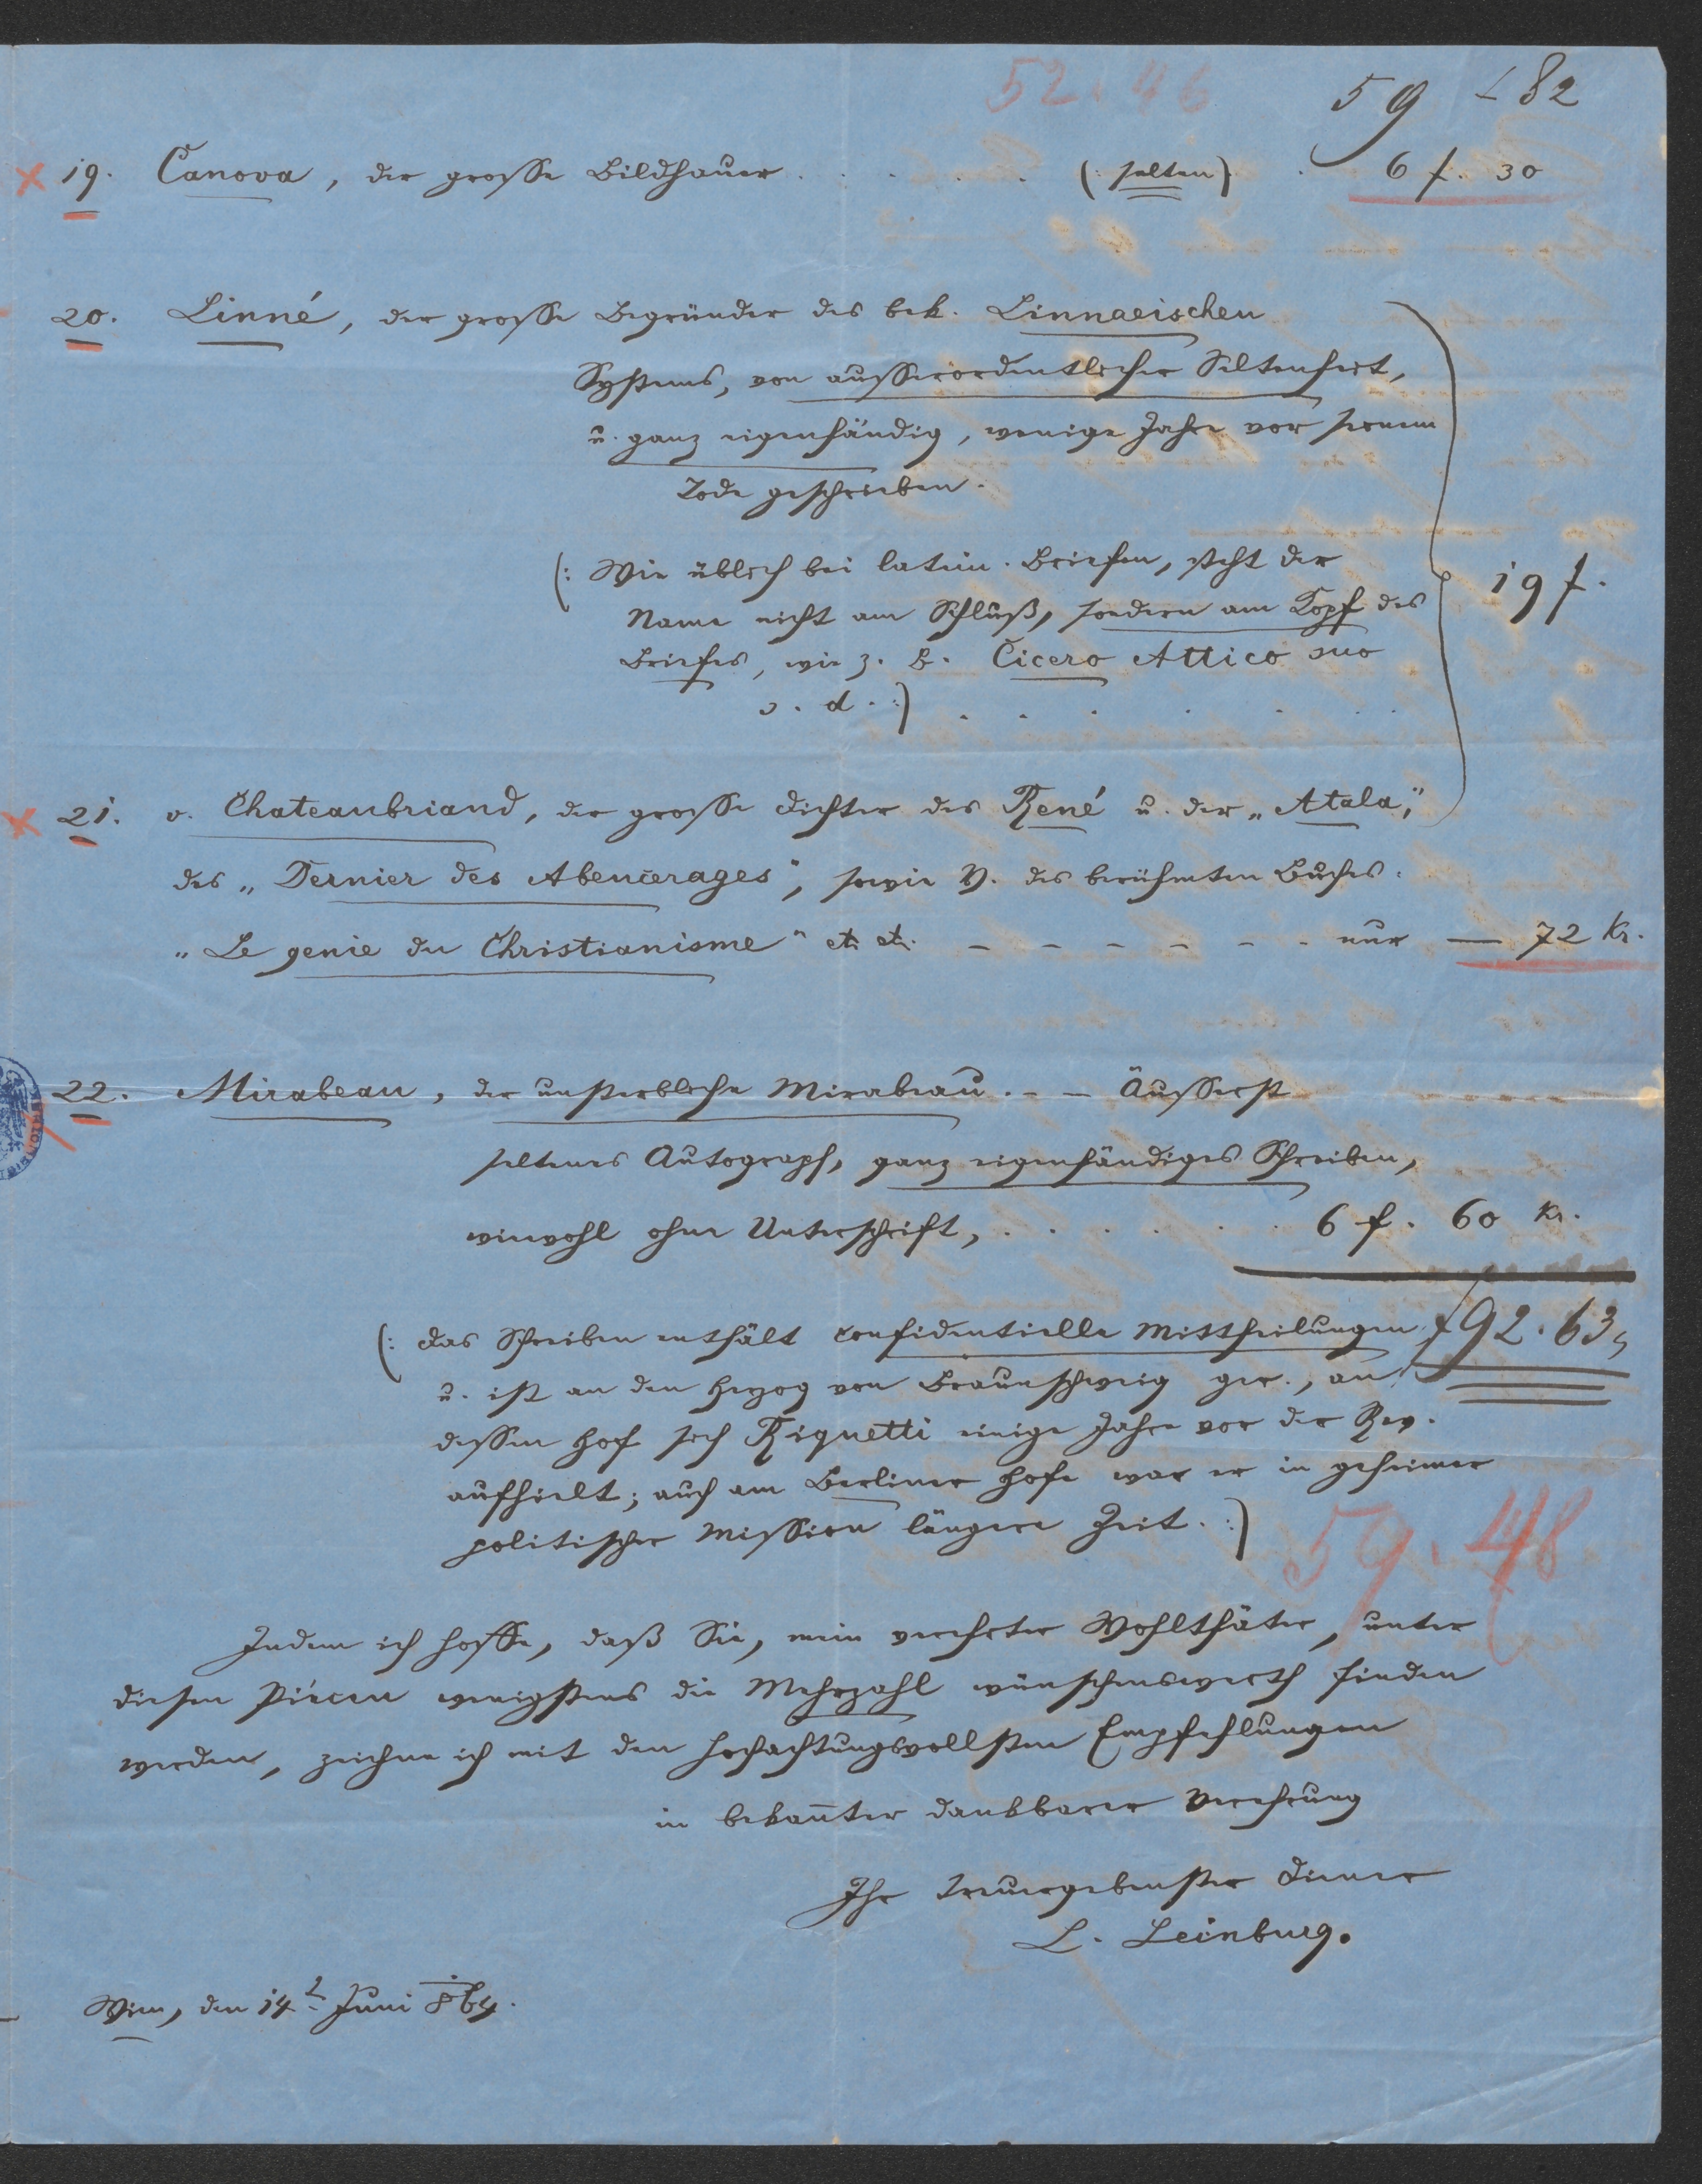 52. 46
59 - 82
19. Canova, der grosse Bildhauer . . . . . (: selten) . 6 f. 30
20. Linné, der grosse Begründer des bek. Linnaeischen
Systems, von ausserordentlicher Seltenheit,
u. ganz eigenhändig, wenige Jahre vor seinem
Tode geschrieben.
(: Wie üblich bei latein. Briefen, steht der
Name nicht am Schluß, sondern am Kopf des
Briefes, wie z. B. Cicero Attico suo
s. d. :) . . . . . . .
19 f.
21. v. Chateaubriand, der grosse Dichter des René u. der „Atala",
des „Dernier des Abencerages", sowie V. des berühmten Buches:
„Le genie du Christianisme" etc etc. – – – – – – nur — 72 Kr.
22. Mirabeau, der unsterbliche Mirabeau. – – Äusserst
seltenes Autograph, ganz eigenhändiges Schreiben,
wiewohl ohne Unterschrift, . . . . . . 6 f. 60 Kr.
f 92. 63
(: Das Schreiben enthält confidentielle Mittheilungen
u. ist an den Herzog von Braunschweig ger., an
dessen Hof sich Riquetti einige Jahre vor der Rev.
aufhielt; auch am Berliner Hofe war er in geheimer
politischer Mission längere Zeit. :)
59. 48
Indem ich hoffe, daß Sie, mein verehrter Wohlthäter, unter
diesen Piècen wenigstens die Mehrzahl wünschenswerth finden
werden, zeichne ich mit den hochachtungsvollsten Empfehlungen
in bekan̅ter dankbarer Verehrung
Ihr treuergebenster Diener
L. Leinburg.
Wien, den 14t Juni 864.